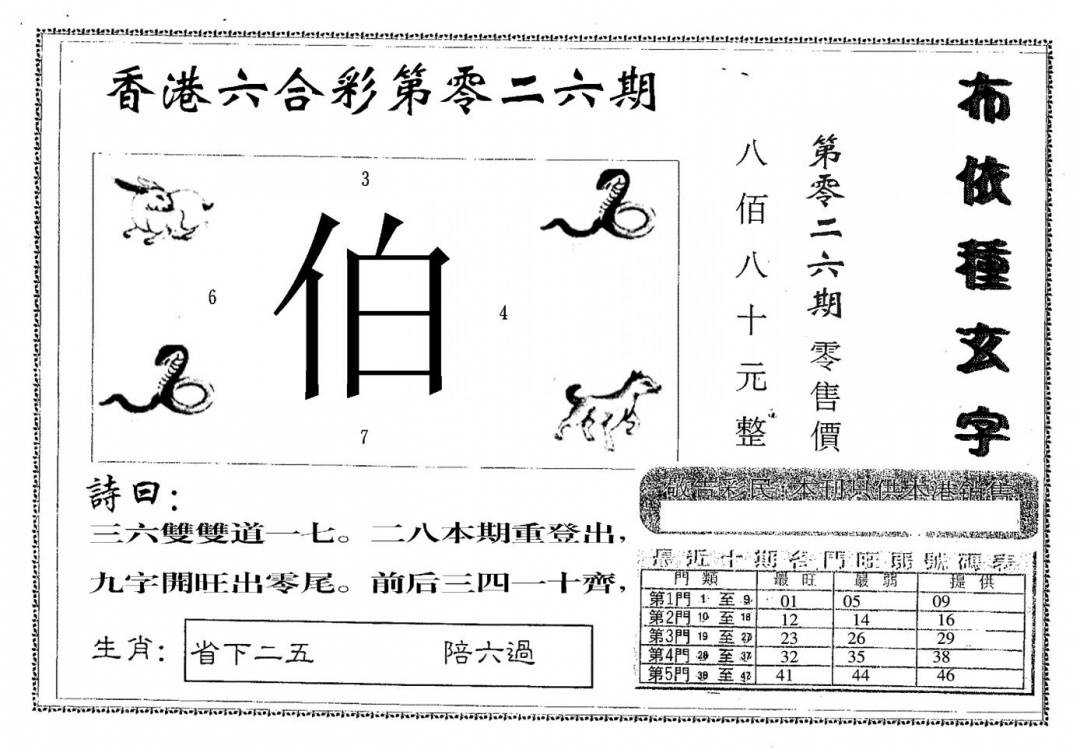 香港六合彩第零二六期
布依種玄字
第零二六期零售價
八佰八十元整
3
6
伯
4
7
詩曰：
三六雙雙道一七。二八本期重登出，
九字開旺出零尾。前后三四一十齊，
生肖： 省下二五 陪六過
敬告彩民：本刊只供本港銷售
最近十期各門旺弱號碼表
門類 最旺 最弱 提供
第1門 1 至 9 01 05 09
第2門 10 至 18 12 14 16
第3門 19 至 27 23 26 29
第4門 28 至 37 32 35 38
第5門 38 至 47 41 44 46